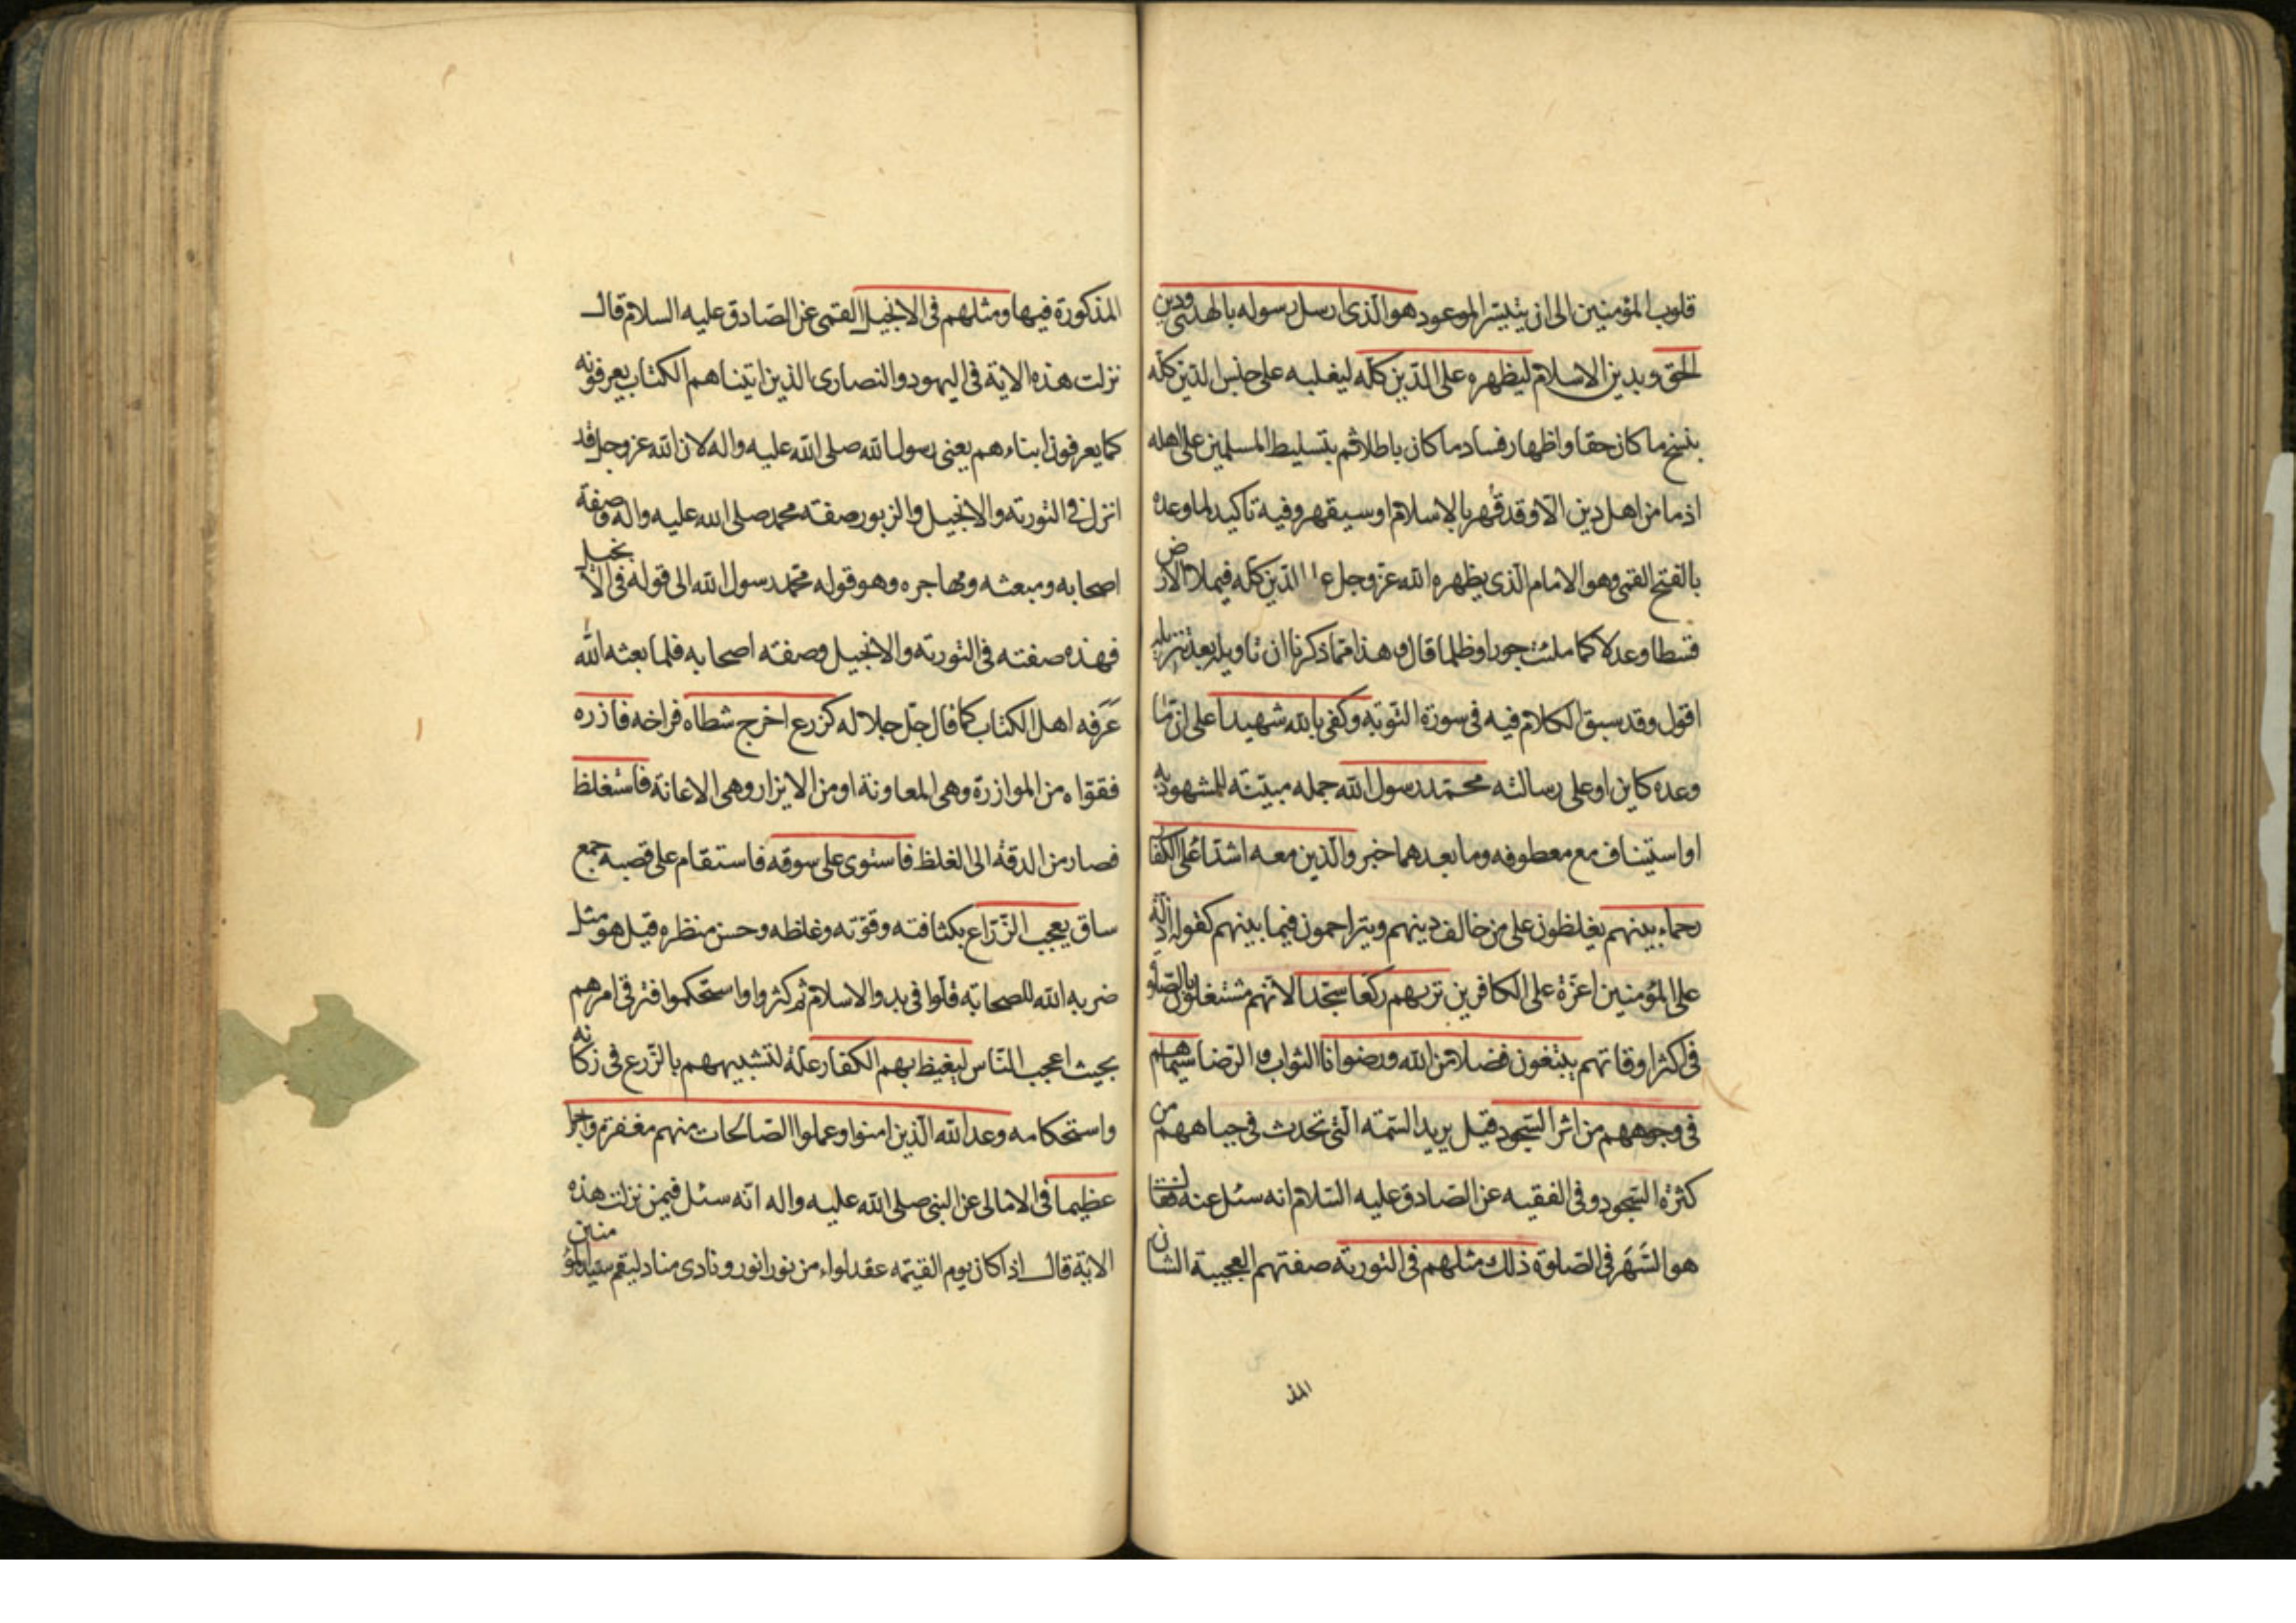 قلوب المؤمنين الى ان يتيسّر الموعود هو الّذى ارسل رسوله بالهدى ودين
الحق وبدين الاسلام ليظهره على الدّين كلّه ليغلبه على جنس الدّين كلّه
بنسخ ما كان حقا واظهار فساد ما كان باطلا ثم بتسليط المسلمين على اهله
اذ ما من اهل دين الّا وقد قُهر بالاسلام او سيقهر وفيه تاكيد لما وعده
بالفتح القمى وهو الامام الّذى يظهره الله عزّ وجل على الدّين كلّه فيملأ الارض
قسطا وعدلا كما ملئت جورا وظلما قال وهذا ممّا ذكرنا ان تاويله بعد تنزيله
اقول وقد سبق الكلام فيه فى سورة التّوبه وكفى بالله شهيدا على انّ ما
وعده كاين او على رسالته محمّد رسول الله جمله مبيّنه للمشهود به
او استيناف مع معطوفه وما بعدهما خبر والّذين معه اشدّاء على الكفّار
رحماء بينهم يغلظون على من خالف دينهم ويتراحمون فيما بينهم كقوله اذلّة
على المؤمنين اعزّة على الكافرين تريهم ركّعا سجّدا لانّهم مشتغلون بالصّلوة
فى اكثر اوقاتهم يبتغون فضلا من الله ورضوانا الثواب والرّضا سيماهم
فى وجوههم من اثر السّجود قيل يريد السّمة الّتى تحدث فى جباههم من
كثرة السّجود وفى الفقيه عن الصّادق عليه السّلام انه سئل عنه فقال
هو السَّهَر فى الصّلوة ذلك مثلهم فى التّورية صفتهم العجيبة الشان
المذ
المذكورة فيها ومثلهم فى الانجيل القمى عن الصّادق عليه السلام قال
نزلت هذه الاية فى اليهود والنصارى الذين اتيناهم الكتاب يعرفونه
كما يعرفون ابناءهم يعنى رسول الله صلى الله عليه واله لان الله عز وجل قد
انزل فى التورية والانجيل والزبور صفة محمد صلى الله عليه واله وصفة
اصحابه ومبعثه ومهاجره وهو قوله محمّد رسول الله الى قوله فى الانجيل
فهذه صفته فى التورية والانجيل وصفة اصحابه فلما بعثه الله
عَرَفه اهل الكتاب كما قال جلّ جلاله كزرع اخرج شطاه فراخه فازره
فقوّاه من الموازرة وهى المعاونة او من الايزار وهى الاعانة فاستغلظ
فصار من الدقة الى الغلظ فاستوى على سوقه فاستقام على قصبه جمع
ساق يعجب الزّرّاع بكثافته وقوّته وغلظه وحسن منظره قيل هو مثل
ضربه الله للصحابة قلّوا فى بدو الاسلام ثم كثروا واستحكموا فترقى امرهم
بحيث اعجب النّاس ليغيظ بهم الكفّار علّة لتشبيههم بالزّرع فى زكائه
واستحكامه وعد الله الّذين امنوا وعملوا الصّالحات منهم مغفرة واجرا
عظيما فى الامالى عن النبى صلى الله عليه واله انّه سئل فيمن نزلت هذه
الاية قال اذا كان يوم القيمه عقد لواء من نور انور ونادى مناد ليقم سيد المؤمنين